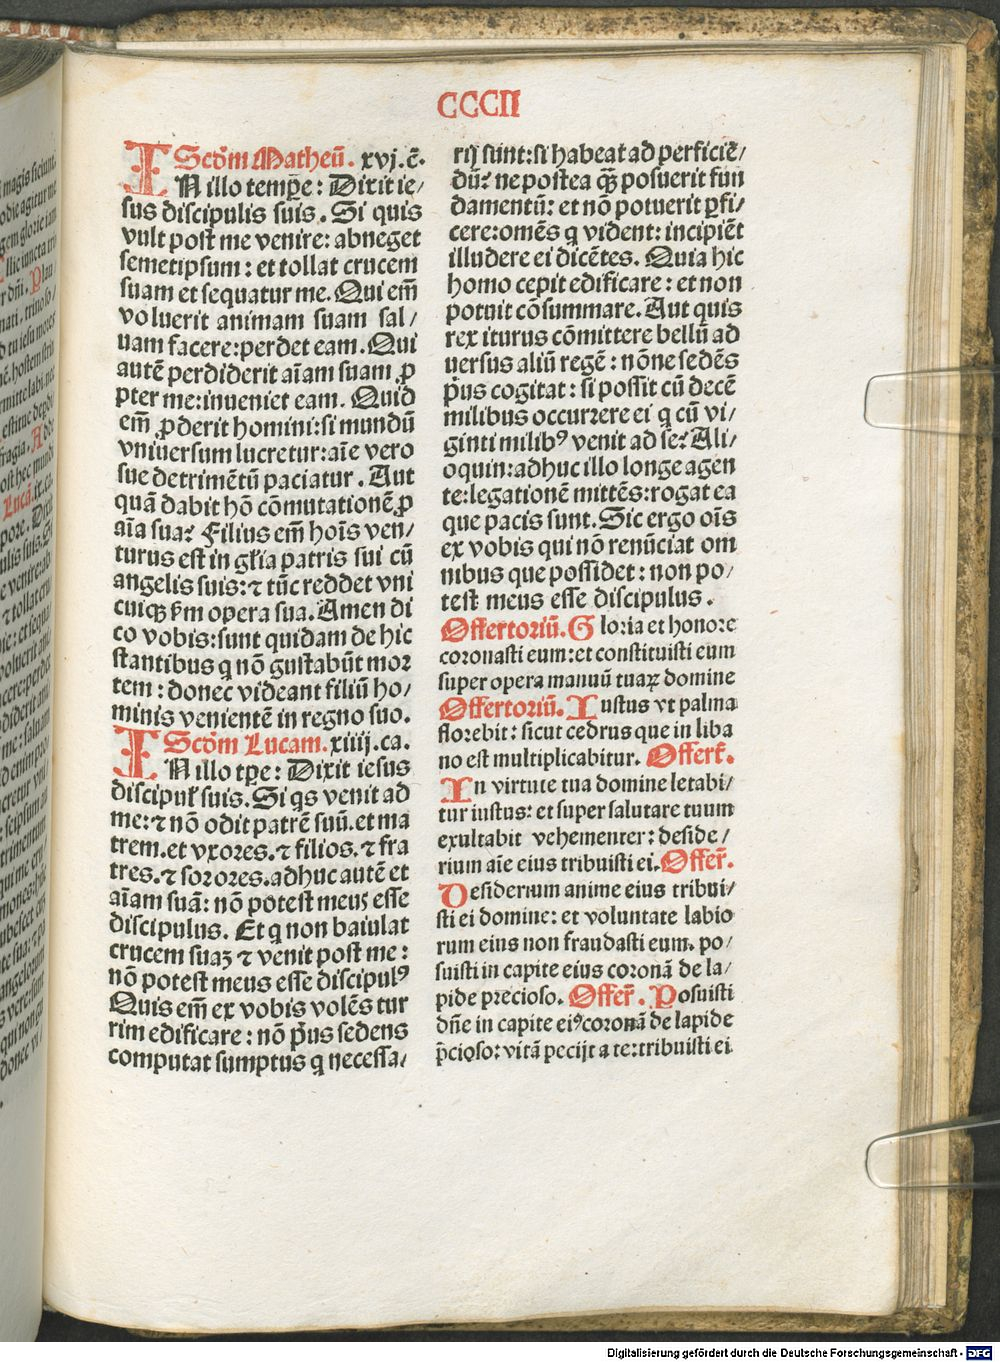 CCCII
Scd'm Matheū. xvj. c̄.
IN illo temp̱e: Dixit ie/
sus discipulis suis. Si quis
vult post me venire: abneget
semetipsum: et tollat crucem
suam et sequatur me. Qui em̄
voluerit animam suam sal/
uam facere: perdet eam. Qui
autē perdiderit aīam suam ꝓ
pter me: inueniet eam. Quid
em̄ ꝓderit homini: si mundū
vniuersum lucretur: aīe vero
sue detrimētū paciatur. Aut
quā dabit hō cōmutationē ꝓ
aīa sua? Filius em̄ hoīs ven/
turus est in gl'ia patris sui cū
angelis suis: ⁊ tūc reddet vni
cuiqꝫ ẜm opera sua. Amen di
co vobis: sunt quidam de hic
stantibus q̇ nō gustabūt mor
tem: donec videant filiū ho/
minis venientē in regno suo.
Scd'm Lucam. xiiij. ca.
IN illo tp̱e: Dixit iesus
discipul' suis. Si q̇s venit ad
me: ⁊ nō odit patrē suū. et ma
trem. et vxores. ⁊ filios. ⁊ fra
tres. ⁊ sorores. adhuc autē et
aīam suā: nō potest meus esse
discipulus. Et q̇ non baiulat
crucem suaꝫ ⁊ venit post me:
nō potest meus esse discipulꝰ
Quis em̄ ex vobis volēs tur
rim edificare: nō p̄us sedens
computat sumptus q̇ necessa/
rij sunt: si habeat ad perficiē/
dū? ne postea qꝫ̄ posuerit fun
damentū: et nō potuerit ꝑfi/
cere: omēs q̇ vident: incipiēt
illudere ei dicētes. Quia hic
homo cepit edificare: et non
potuit cōsummare. Aut quis
rex iturus cōmittere bellū ad
uersus aliū regē: nōne sedēs
p̄us cogitat: si possit cū decē
milibus occurrere ei q̇ cū vi/
ginti milibꝰ venit ad se? Ali/
oquin: adhuc illo longe agen
te: legationē mittēs: rogat ea
que pacis sunt. Sic ergo oīs
ex vobis qui nō renūciat om
nibus que possidet: non po/
test meus esse discipulus.
Offertoriū. Gloria et honore
coronasti eum: et constituisti eum
super opera manuū tuaꝝ domine
Offertoriū. Iustus vt palma
florebit: sicut cedrus que in liba
no est multiplicabitur. Offert'.
In virtute tua domine letabi/
tur iustus: et super salutare tuum
exultabit vehementer: deside/
rium aīe eius tribuisti ei. Offer̄.
Desiderium anime eius tribui/
sti ei domine: et voluntate labio
rum eius non fraudasti eum. po/
suisti in capite eius coronā de la/
pide precioso. Offer̄. Posuisti
dn̄e in capite eiꝰ coronā de lapide
p̄cioso: vitā pecijt a te: tribuisti ei
Digitalisierung gefördert durch die Deutsche Forschungsgemeinschaft - DFG